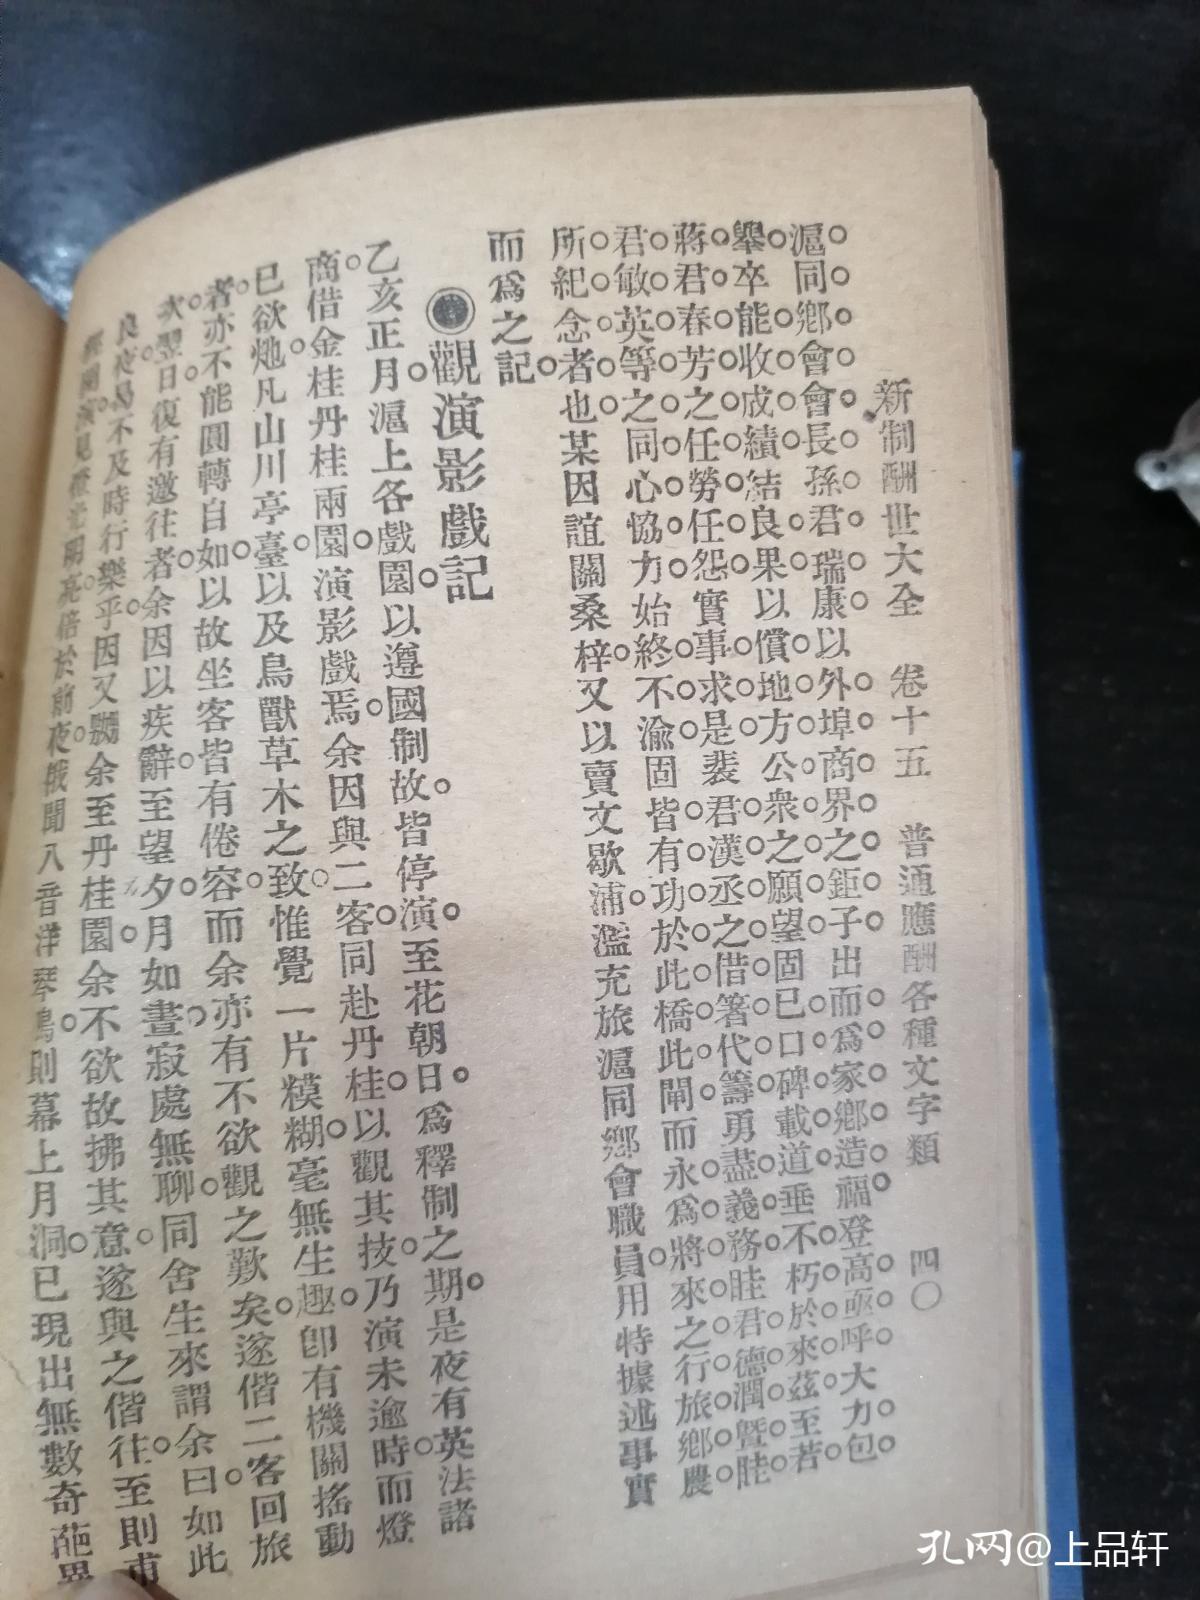 新制酬世大全　卷十五　普通應酬各種文字類　四〇
滬同鄉會會長孫君瑞康以外埠商界之鉅子出而爲家鄉造福登高亟呼大力包
舉卒能收成績結良果以償地方公衆之願望固已口碑載道垂不朽於來茲至若
蔣君春芳之任勞任怨實事求是裴君漢丞之借箸代籌勇盡義務眭君德潤曁眭
君敏英等之同心協力始終不渝固皆有功於此橋此閘而永爲將來之行旅鄉農
所紀念者也某因誼關桑梓又以賣文歇浦濫充旅滬同鄉會職員用特據述事實
而爲之記
觀演影戲記
乙亥正月滬上各戲園以遵國制故皆停演至花朝日爲釋制之期是夜有英法諸
商借金桂丹桂兩園演影戲焉余因與二客同赴丹桂以觀其技乃演未逾時而燈
已欲灺凡山川亭臺以及鳥獸草木之致惟覺一片糢糊毫無生趣卽有機關搖動
者亦不能圓轉自如以故坐客皆有倦容而余亦有不欲觀之歎矣遂偕二客回旅
次翌日復有邀往者余因以疾辭至望夕月如晝寂處無聊同舍生來謂余曰如此
良夜曷不及時行樂乎因又嬲余至丹桂園余不欲故拂其意遂與之偕往至則甫
經開演見燈光明亮倍於前夜俄聞八音洋琴鳴則幕上月洞已現出無數奇葩異
孔网@上品轩